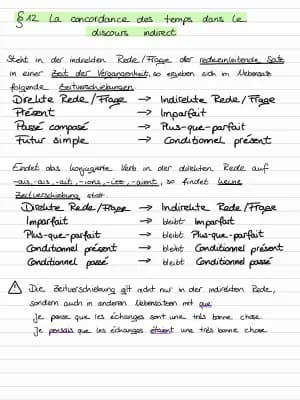 §12 La concordance des temps dans le
discours indirect
Steht in der indirekten Rede/Frage der redeeinleitende Satz
in einer Zeit der Vergangenheit, so ergeben sich im Nebensatz
folgende Zeitverschiebungen:
Direkte Rede/Frage → Indirekte Rede/Frage
Présent → Imparfait
Passé composé → Plus-que-parfait
Futur simple → Conditionnel présent
Endet das konjugierte Verb in der direkten Rede auf
-ais, -ais, -ait, -ions, -iez, -aient, so findet keine
Zeitverschiebung statt.
Direkte Rede/Frage → Indirekte Rede/Frage
Imparfait → bleibt Imparfait
Plus-que-parfait → bleibt Plus-que-parfait
Conditionnel présent → bleibt Conditionnel présent
Conditionnel passé → bleibt Conditionnel passé
Die Zeitverschiebung gilt nicht nur in der indirekten Rede,
sondern auch in anderen Nebensätzen mit que
Je pense que les échanges sont une très bonne chose.
Je pensais que les échanges étaient une très bonne chose.